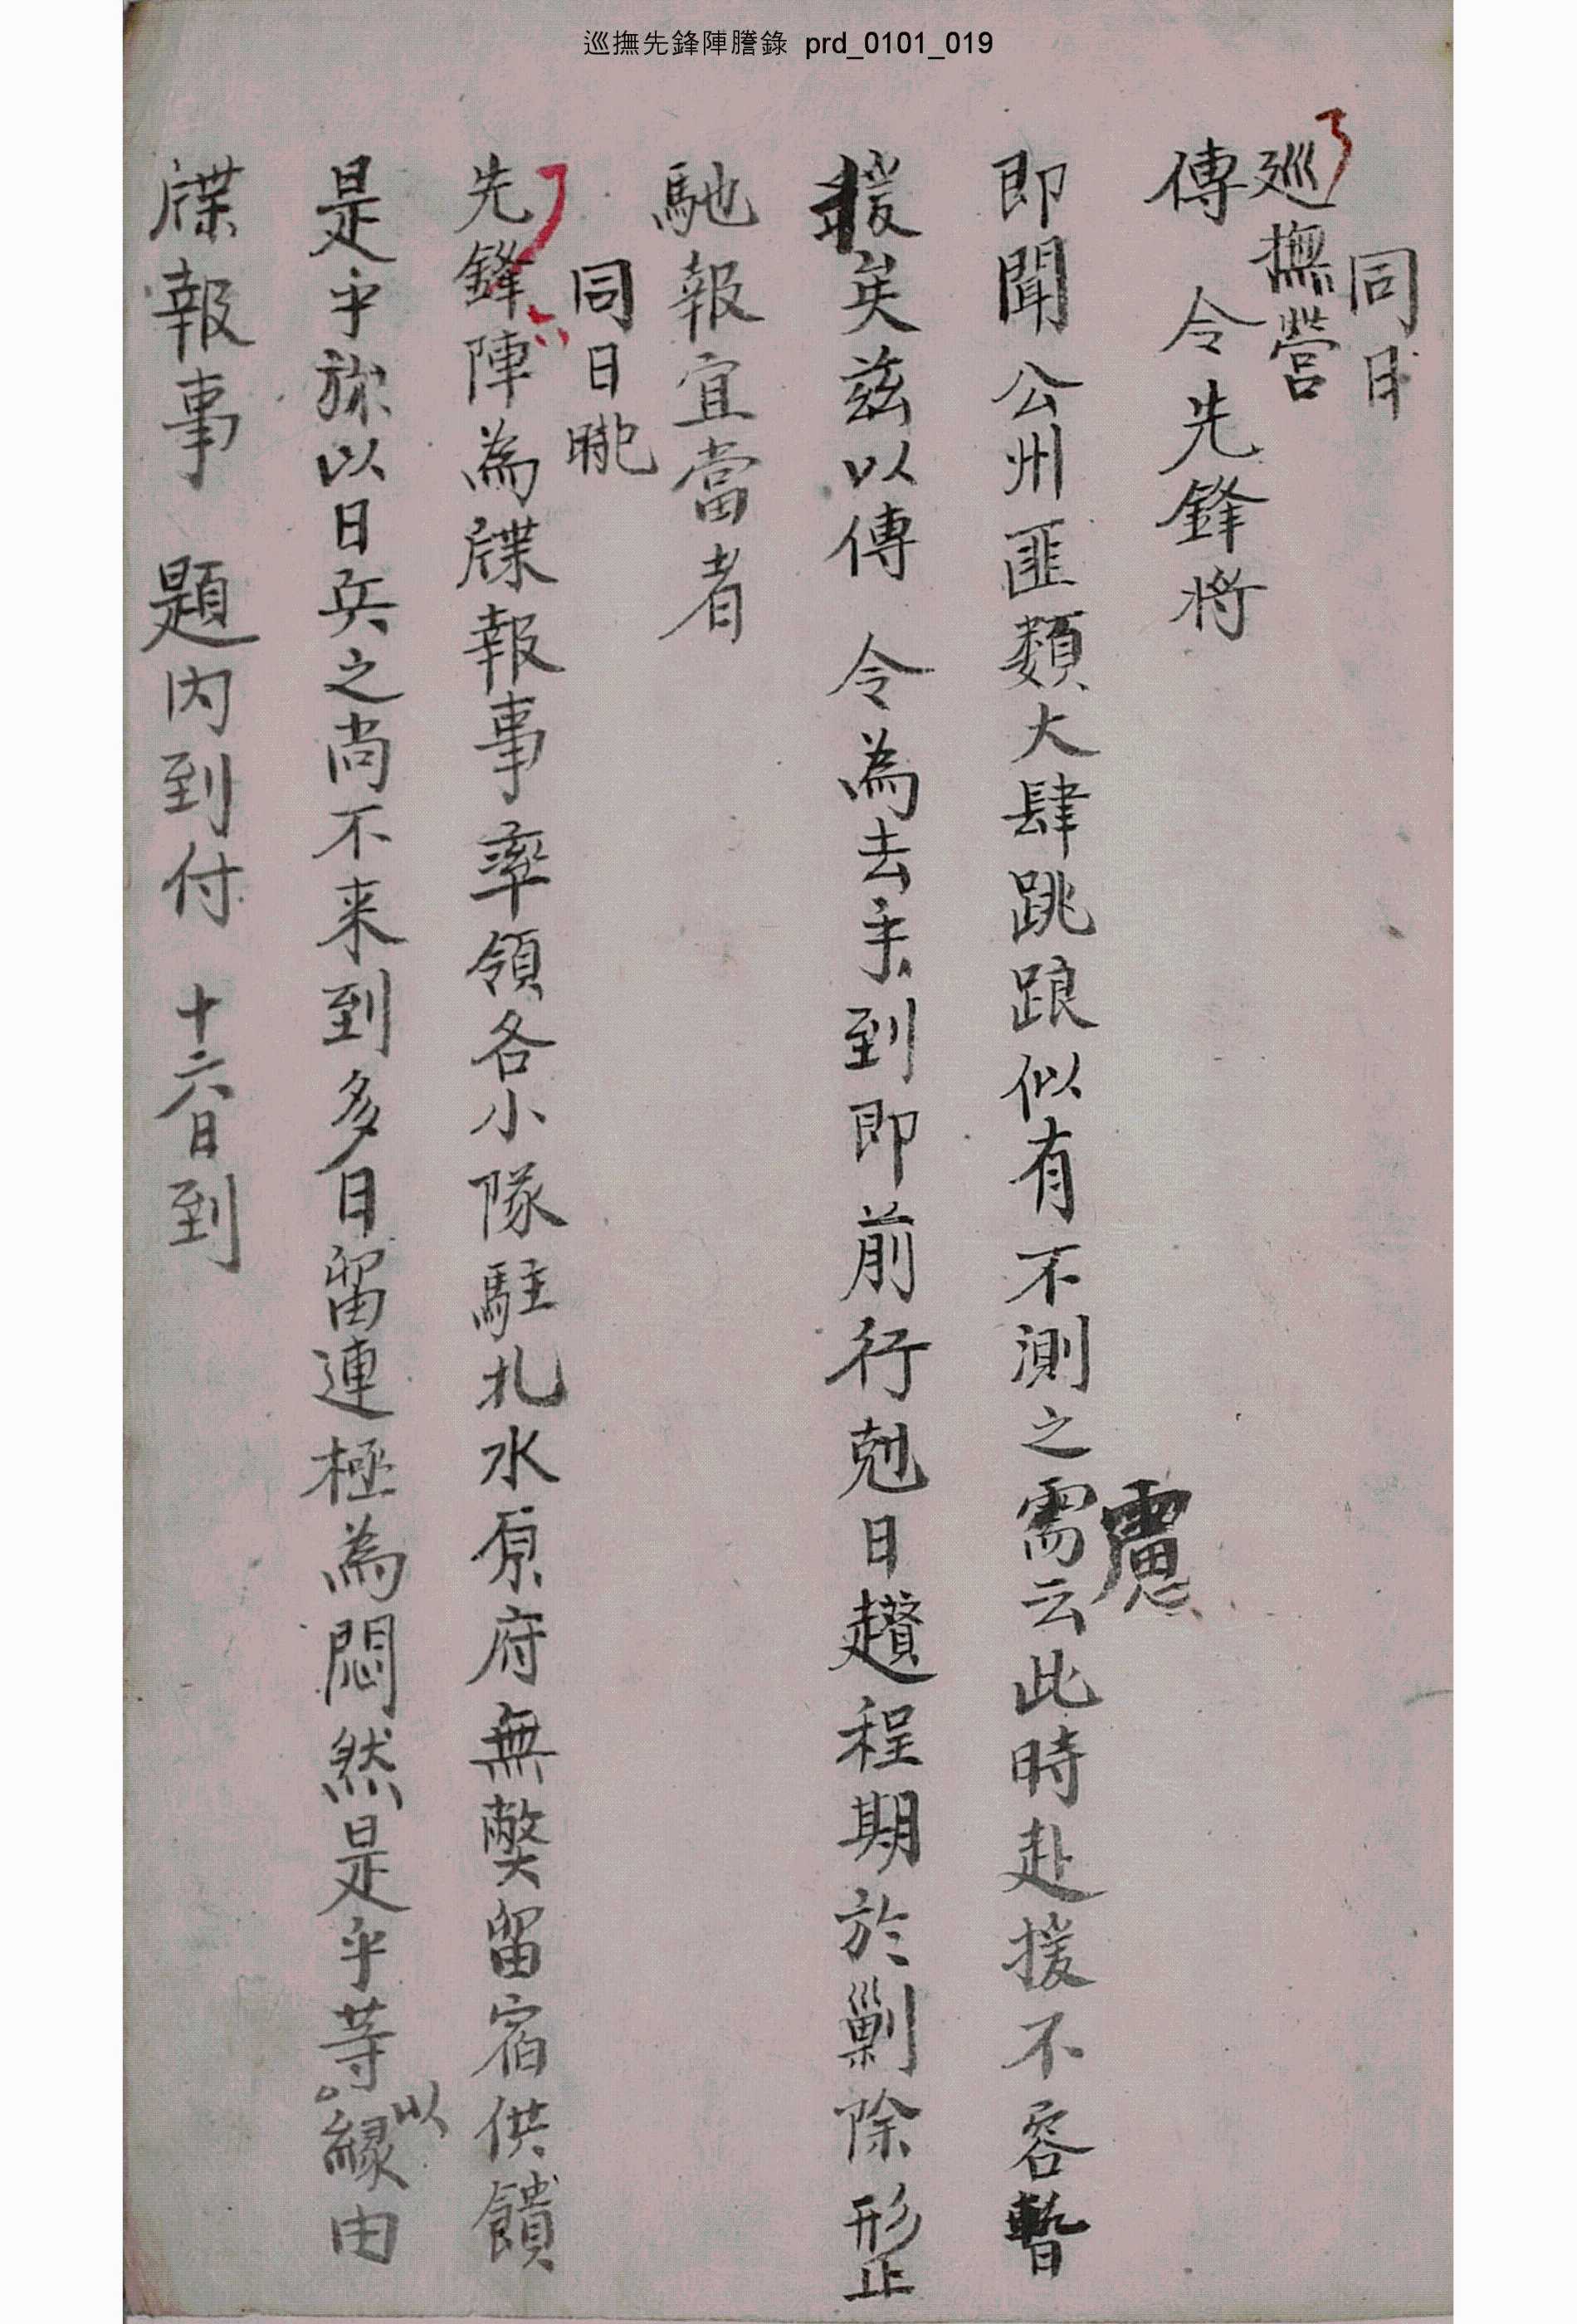 巡撫先鋒陣謄錄 prd_0101_019
同日
巡撫營
傳 令先鋒將
即聞公州匪類大肆跳踉似有不測之需云此時赴援不容暫
慮
援矣茲以傳 令為去乎到即前行剋日趲程期於剿除形止
馳報宜當者
同日
先鋒陣為牒報事率領各小隊駐扎水原府無獘留宿供饋
是乎旀以日兵之尚不来到多日留連極為悶然是乎等緣由
以
牒報事 題內到付 十六日到